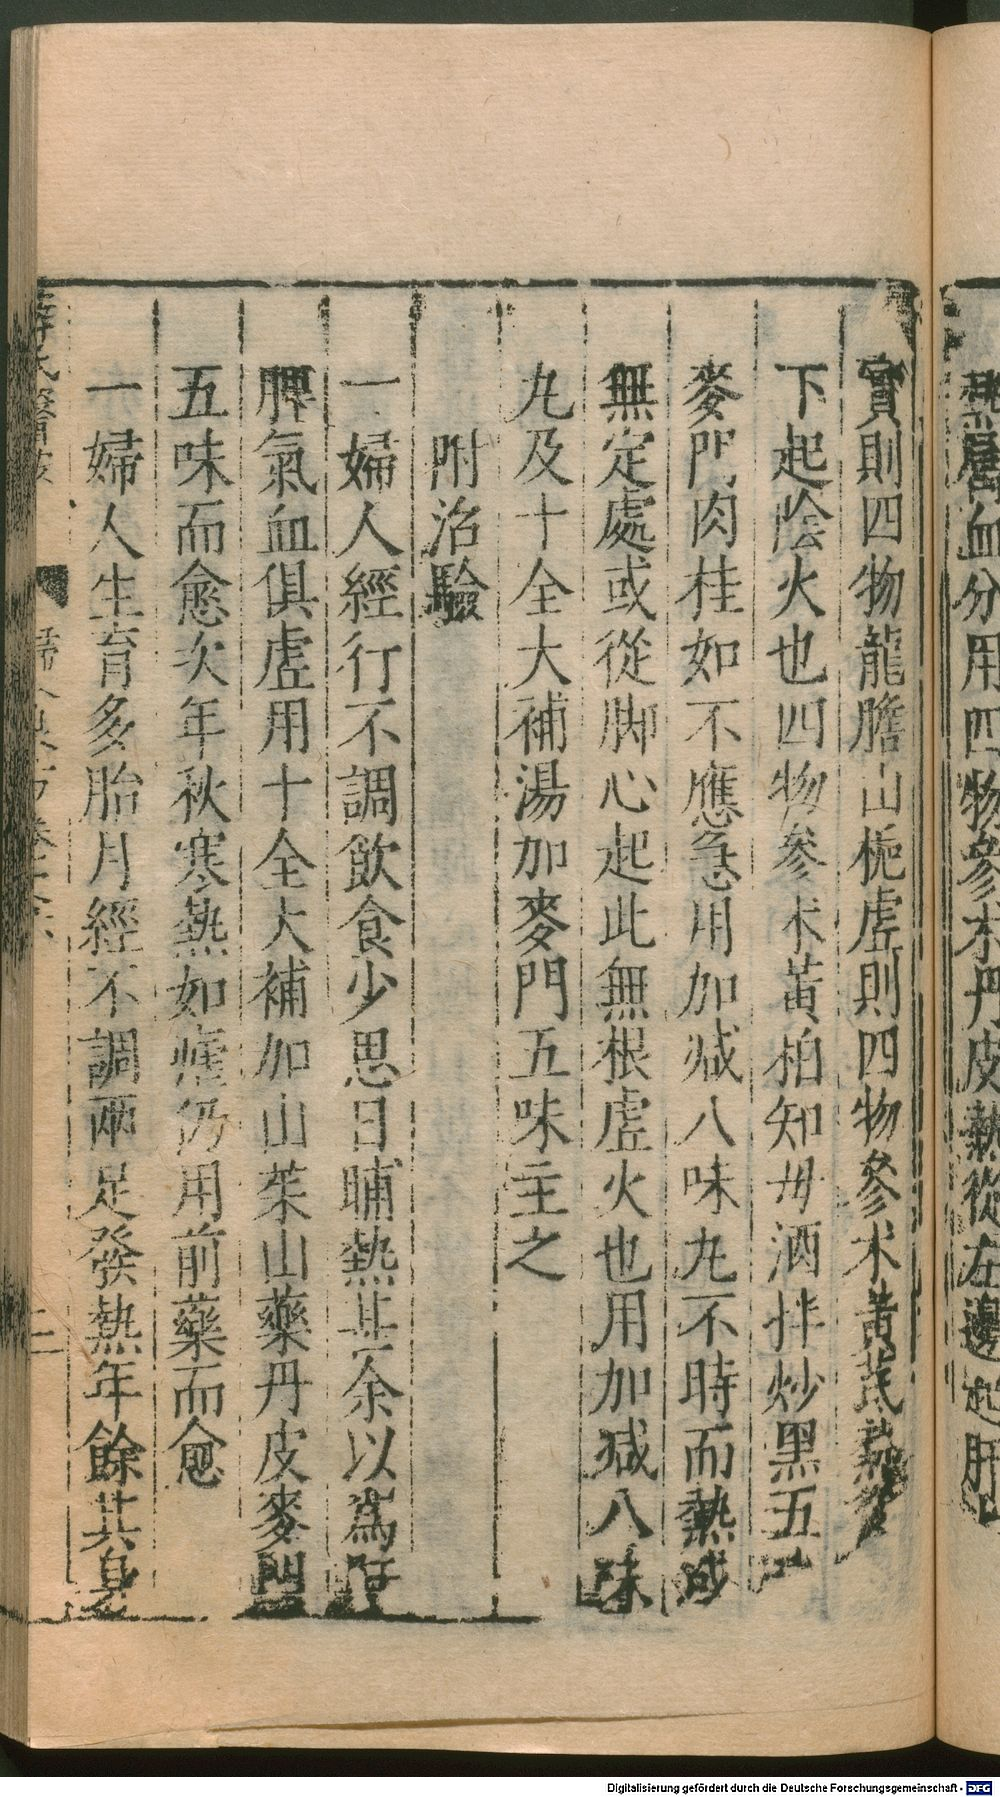 熱屬血分用四物參术丹皮熱從左邊起肝
實則四物龍膽山梔虛則四物參术黃芪熱從
下起陰火也四物參术黃柏知毋酒拌炒黑五
麥門肉桂如不應急用加减八味丸不時而熱或
無定處或從脚心起此無根虛火也用加减八味
丸及十全大補湯加麥門五味主之
附治驗
一婦人經行不調飲食少思日晡熱甚余以爲肝
脾氣血俱虛用十全大補加山茱山藥丹皮麥門
五味而愈次年秋寒熱如瘧仍用前藥而愈
一婦人生育多胎月經不調兩足發熱年餘其身
薛氏醫
婦人良方卷之六
二
Digitalisierung gefördert durch die Deutsche Forschungsgemeinschaft - DFG